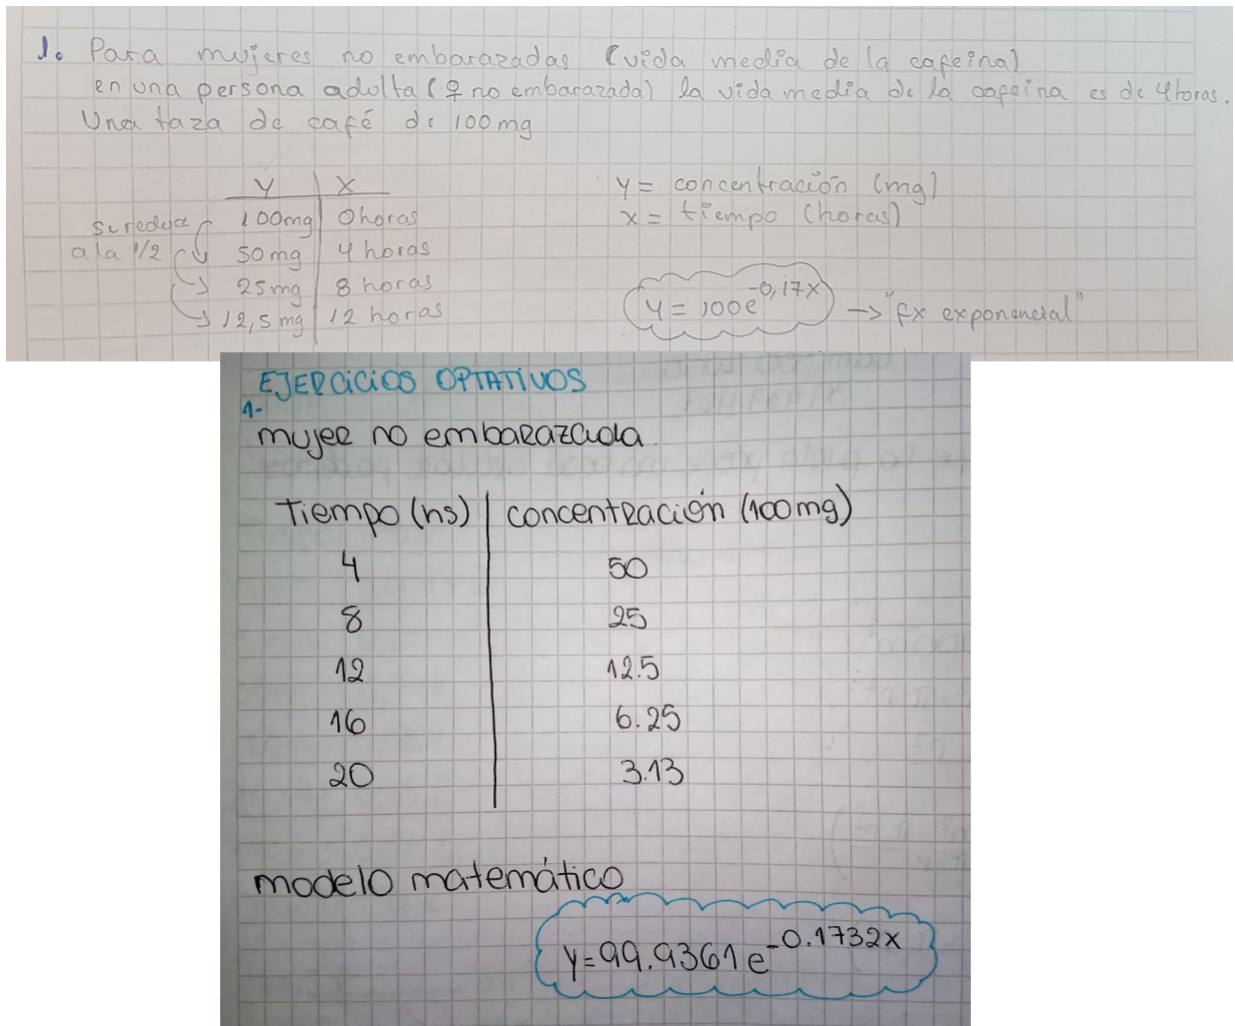 1. Para mujeres no embarazadas (vida media de la cafeína)
en una persona adulta (♀ no embarazada) la vida media de la cafeína es de 4 horas.
Una taza de café de 100 mg
y x
100mg 0 horas
50mg 4 horas
25mg 8 horas
12,5mg 12 horas
se reduce
a la 1/2
y = concentración (mg)
x = tiempo (horas)
y = 100e^-0,17x → "fx exponencial"
EJERCICIOS OPTATIVOS
1-
mujer no embarazada
Tiempo (hs) concentración (100mg)
4 50
8 25
12 12.5
16 6.25
20 3.13
modelo matemático
y=99.9361e^-0.1732x